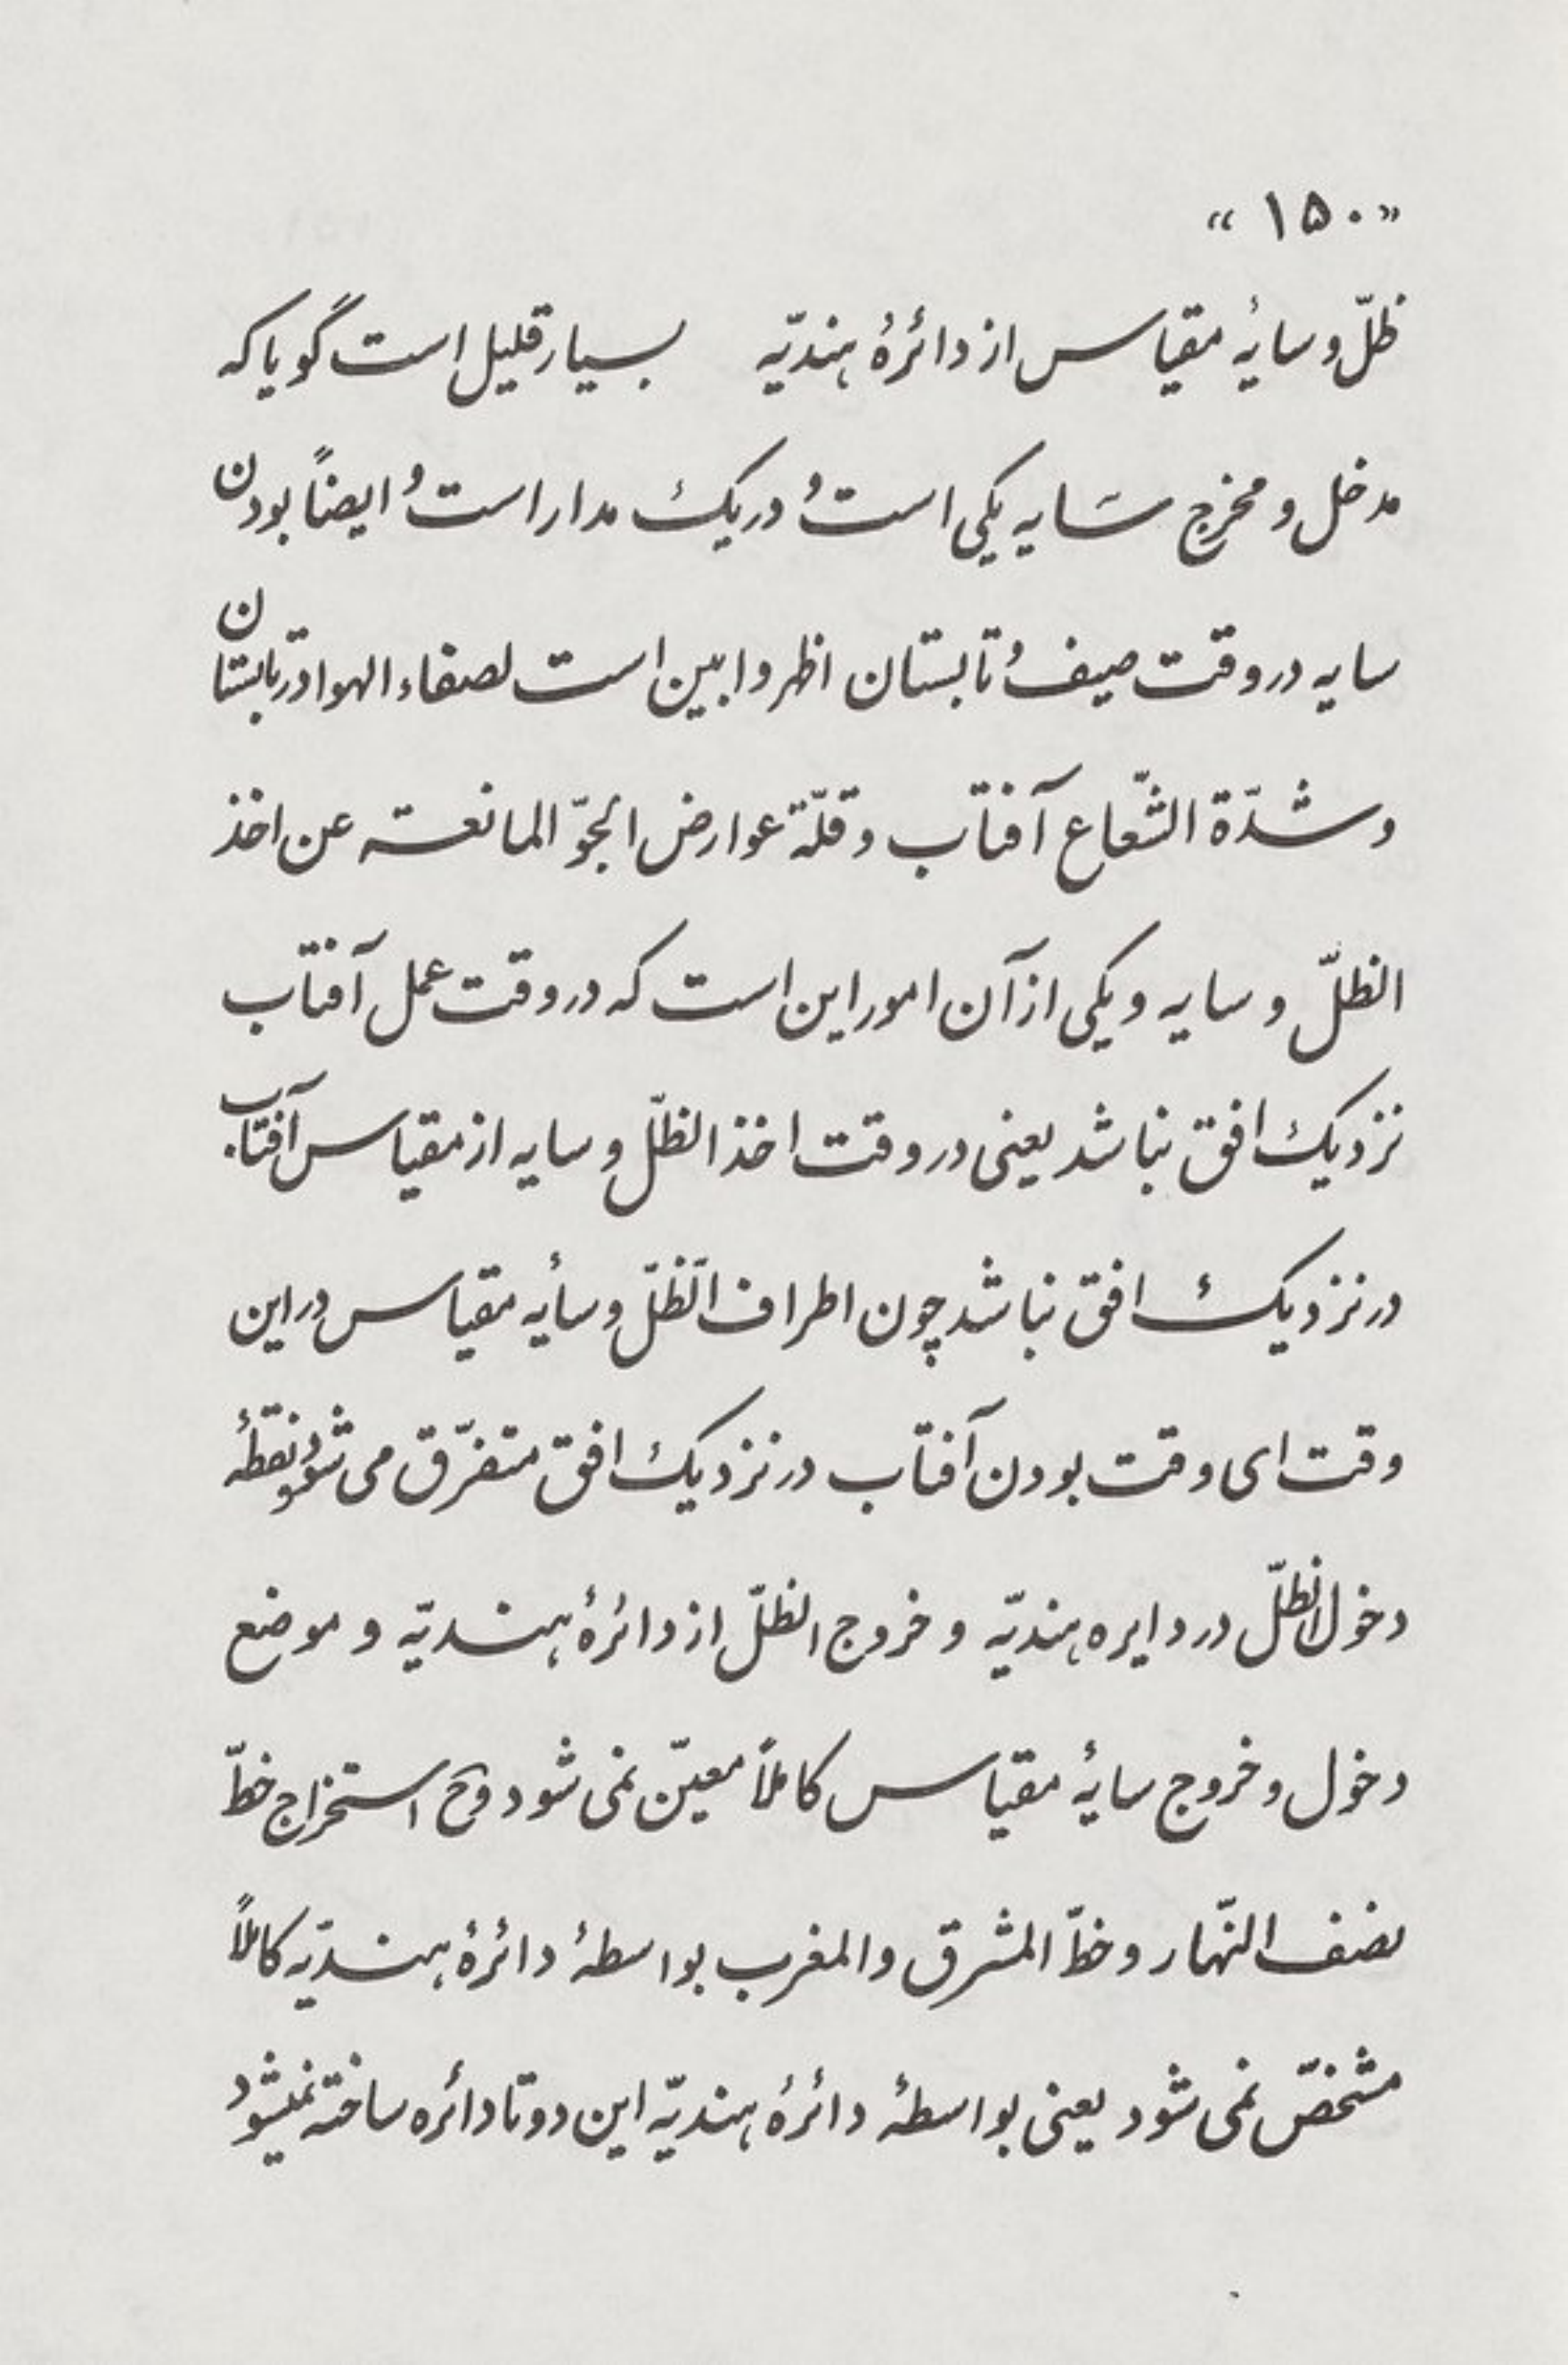 «۱۵۰»
ظلّ و سایهٔ مقیاس از دائرهٔ هندیّه بسیار قلیل است گویا که
مدخل و مخرج سَایه یکی است و در یک مدار است و ایضاً بودن
سایه در وقت صیف و تابستان اظهر و ابین است لصفاء الهوا در تابستان
و شدّة الشّعاع آفتاب و قلّة عوارض الجوّ المانعه عن اخذ
الظلّ و سایه و یکی از آن امور این است که در وقت عمل آفتاب
نزدیک افق نباشد یعنی در وقت اخذ الظلّ و سایه از مقیاس آفتاب
در نزدیک افق نباشد چون اطراف الَظلّ و سایٔه مقیاس در این
وقت ای وقت بودن آفتاب در نزدیک افق متفرّق می شود و نقطهٔ
دخول الظلّ در دایره هندیّه و خروج الظلّ از دائرهٔ هندیّه و موضع
دخول و خروج سایهٔ مقیاس کاملاً معیّن نمی شود و ح استخراج خطّ
نصف النّهار و خطّ المشرق والمغرب بواسطهٔ دائرهٔ هندیّه کاملاً
مشخصّ نمی شود یعنی بواسطهٔ دائرهٔ هندیّه این دو تا دائره ساخته نمیشود